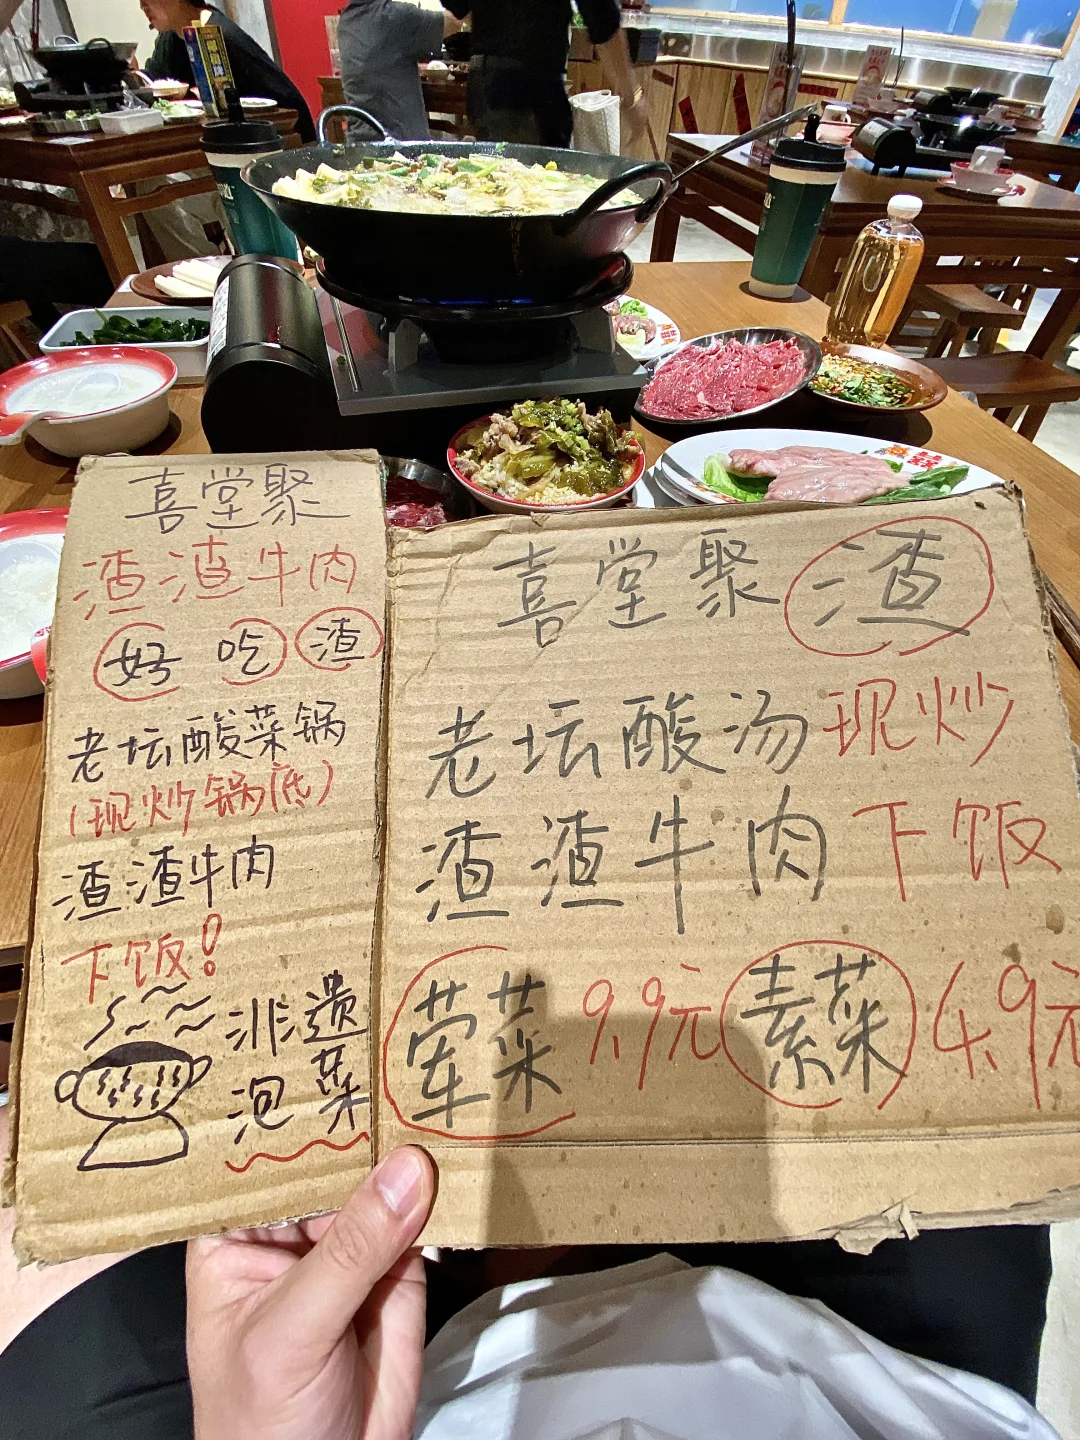 喜堂聚
渣渣牛肉
好吃渣
老坛酸菜锅
(现炒锅底)
渣渣牛肉
下饭!
非遗
泡菜
喜堂聚渣
老坛酸汤现炒
渣渣牛肉下饭
荤菜9.9元素菜4.9元